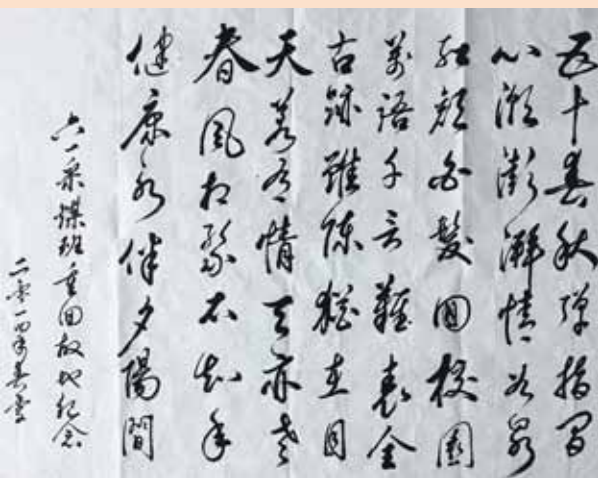 五十春秋弹指间
心潮澎湃情如泉
红颜白髮回校園
萬語千言難表全
古跡雖陳猶在目
天若有情天亦老
春風相聚不知年
健康永伴夕陽間
六一采煤班重回故地纪念
二零一四年春